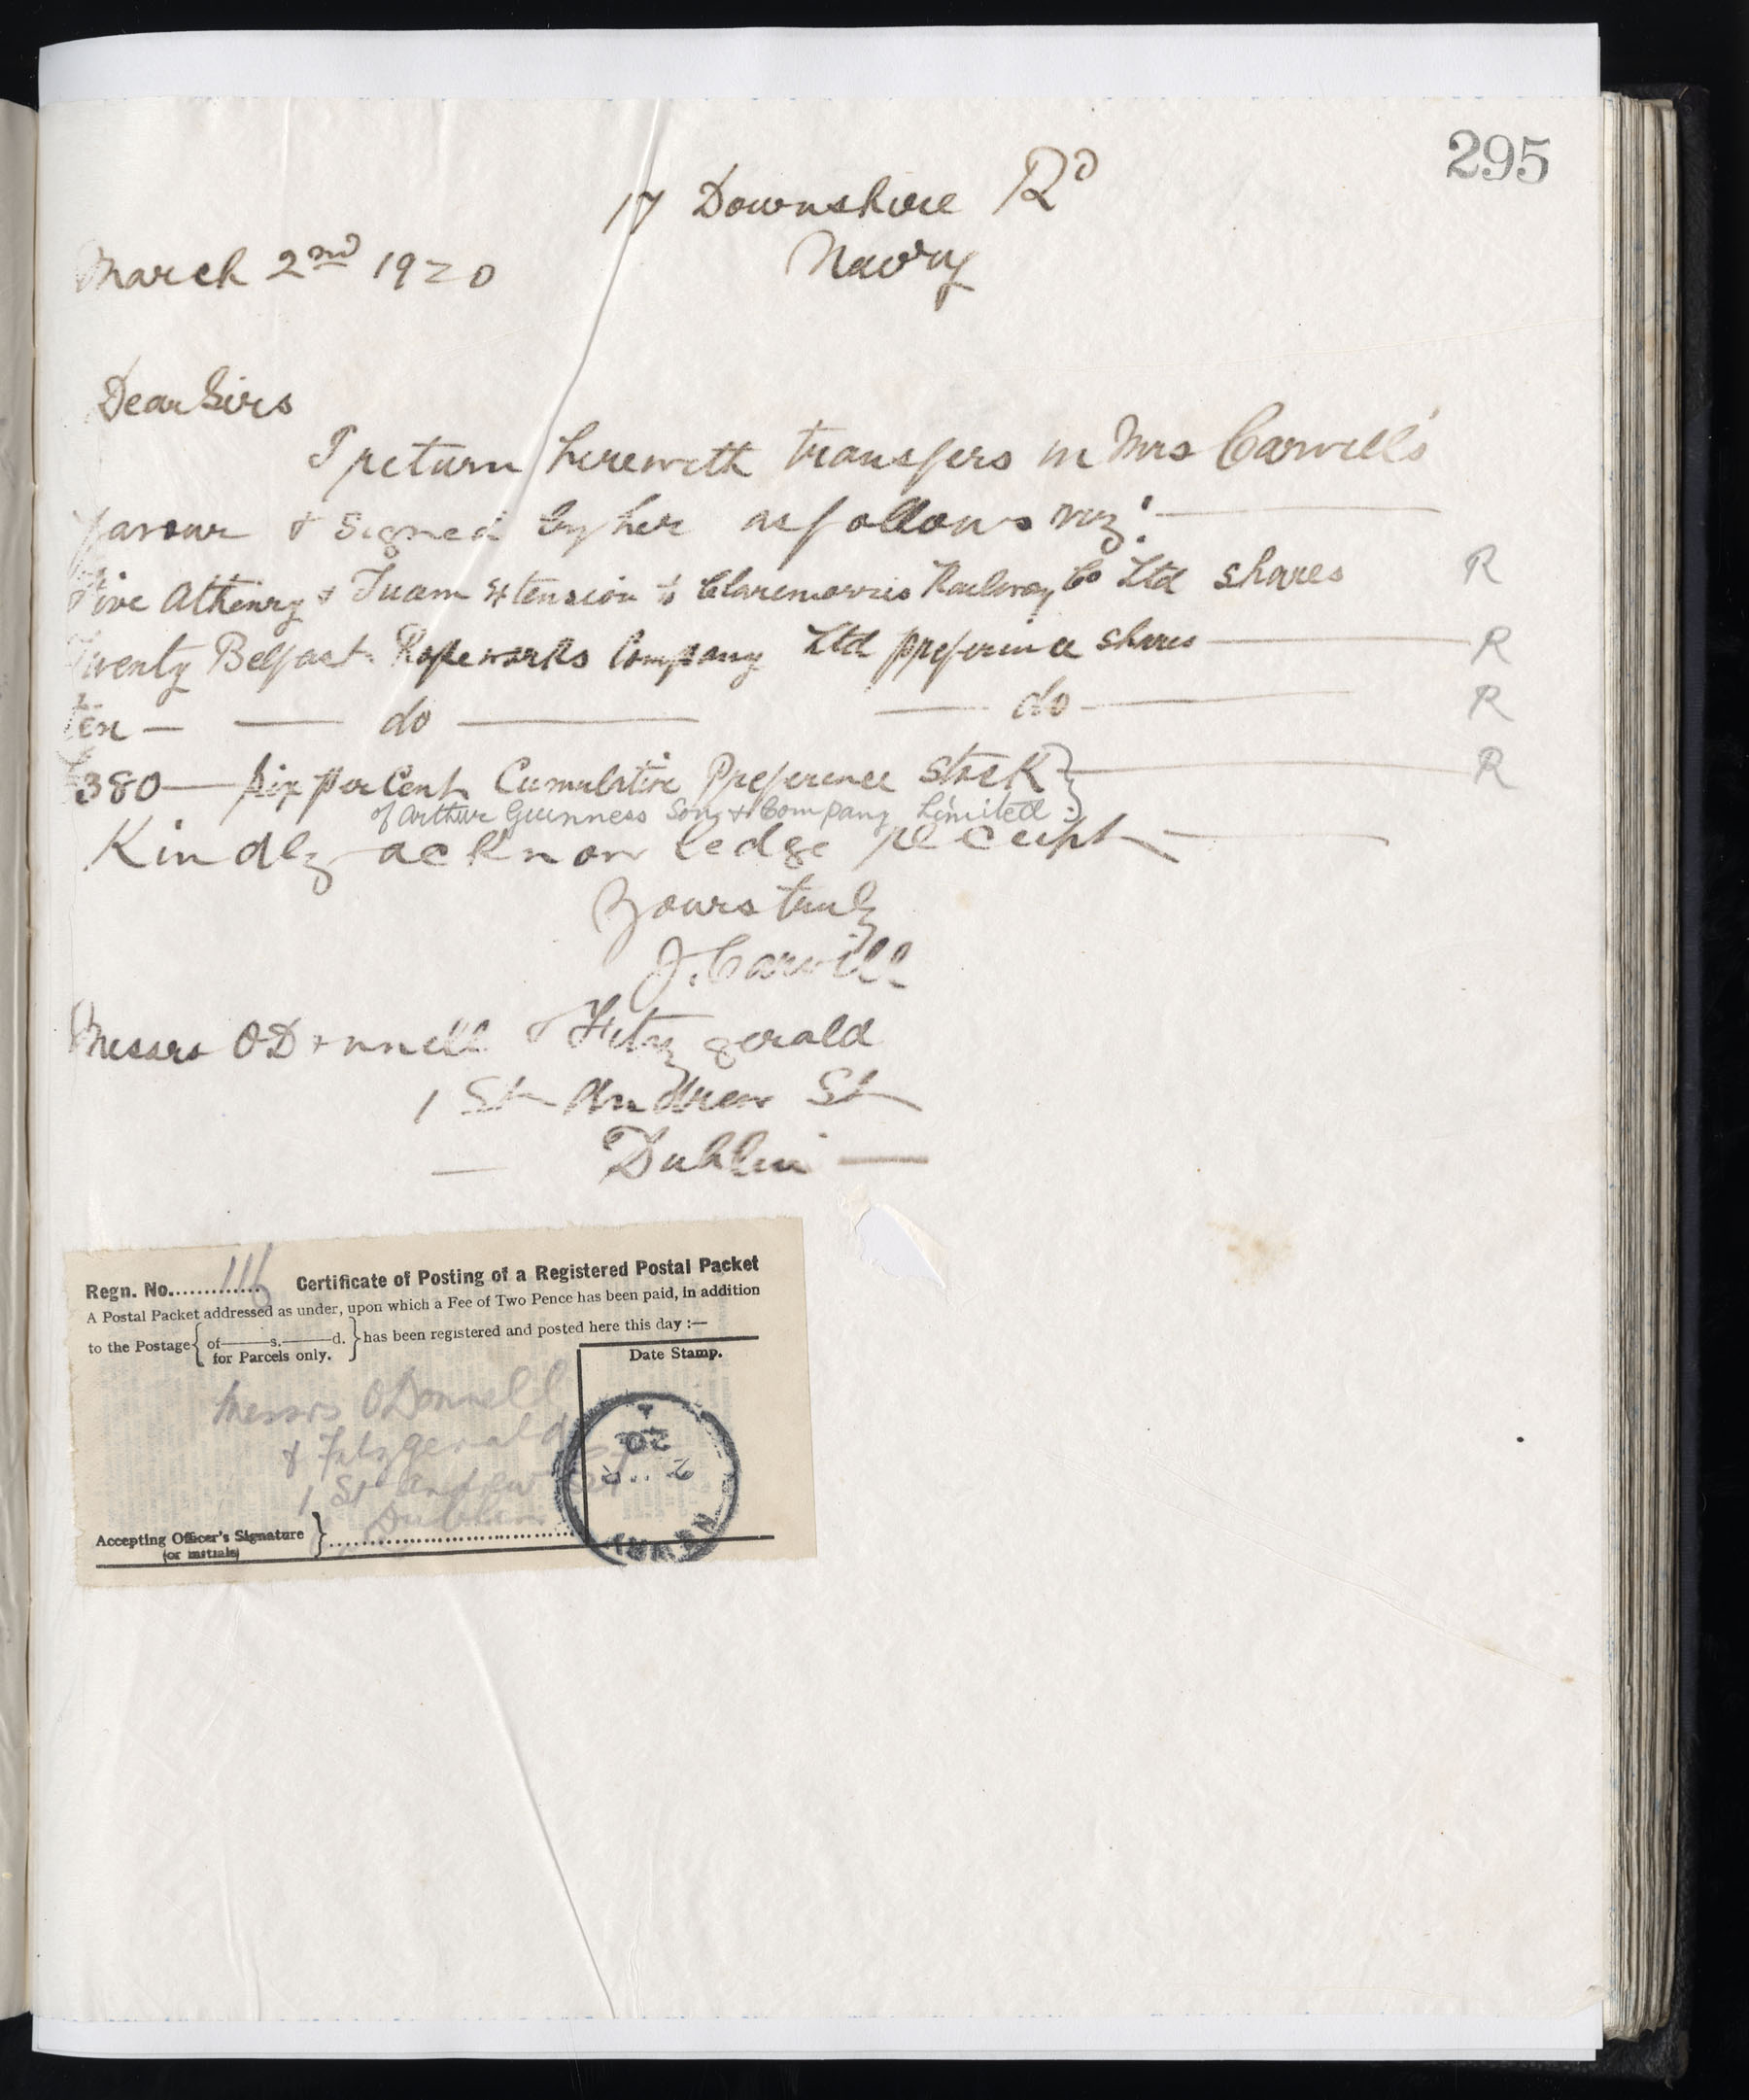 295
17 Downshire Rd
Newry
March 2nd 1920
Dear Sirs
I return herewith transfers in Mrs Carvill's
favour & signed by her as follows viz:
Five Athenry & Tuam Extension to Claremorris Railway Co Ltd shares R
Twenty Belfast Ropeworks Company Ltd preference shares R
ten — do — do — R
£380 — six per Cent Cumulative Preference Stock} R
of Arthur Guinness Son & Company Limited
Kindly acknowledge receipt
Yours truly
J. Carvill
Messrs O'Donnell & Fitzgerald
1 St Andrew St
Dublin
Regn. No. 116 Certificate of Posting of a Registered Postal Packet
A Postal Packet addressed as under, upon which a Fee of Two Pence has been paid, in addition
to the Postage { of——s.——d. } has been registered and posted here this day :—
for Parcels only.
Date Stamp.
Messrs O'Donnell
& Fitzgerald
1 St Andrew St
Dublin
Accepting Officer's Signature }
(or initials)
20